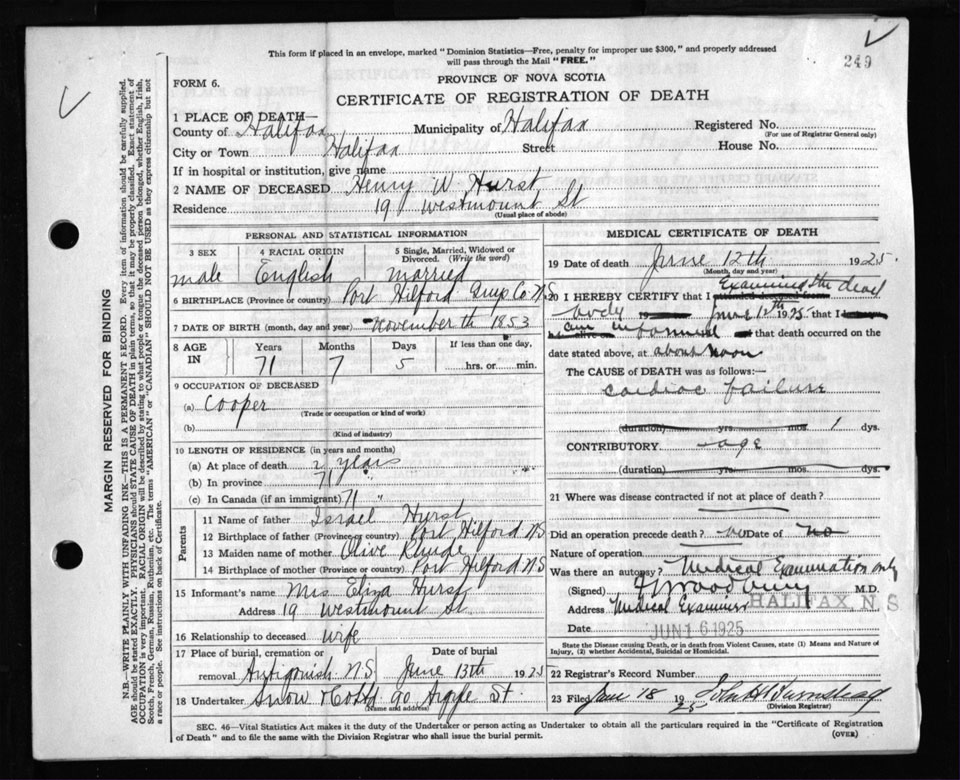 This form if placed in an envelope, marked "Dominion Statistics—Free, penalty for improper use $300," and properly addressed
will pass through the Mail "FREE."
249
FORM 6.
PROVINCE OF NOVA SCOTIA
CERTIFICATE OF REGISTRATION OF DEATH
1 PLACE OF DEATH—
County of Halifax Municipality of Halifax Registered No.
(For use of Registrar General only)
City or Town Halifax Street House No.
If in hospital or institution, give name
2 NAME OF DECEASED Henry W. Hurst
Residence 19 Westmount St
(Usual place of abode)
PERSONAL AND STATISTICAL INFORMATION
3 SEX 4 RACIAL ORIGIN 5 Single, Married, Widowed or
Divorced. (Write the word)
male English married
6 BIRTHPLACE (Province or country) Port Hilford Guys Co. N.S
7 DATE OF BIRTH (month, day and year) November 7th 1853
8 AGE IN Years Months Days If less than one day,
71 7 5 hrs. or min.
9 OCCUPATION OF DECEASED
(a) Cooper
(Trade or occupation or kind of work)
(b)
(Kind of industry)
10 LENGTH OF RESIDENCE (in years and months)
(a) At place of death 2 years
(b) In province 71 "
(c) In Canada (if an immigrant) 71 "
Parents
11 Name of father Israel Hurst
12 Birthplace of father (Province or country) Port Hilford N.S
13 Maiden name of mother Olive
14 Birthplace of mother (Province or country) Port Hilford N.S
15 Informant's name Mrs. Eliza Hurst
Address 19 Westmount St.
16 Relationship to deceased wife
17 Place of burial, cremation or Date of burial
removal Antigonish N.S June 13th 1925
18 Undertaker Snow & Co Ltd 90 Argyle St.
(Name and address)
MEDICAL CERTIFICATE OF DEATH
19 Date of death June 12th 1925.
(Month, day and year)
20 I HEREBY CERTIFY that I attended deceased from Examined the dead
body 19 June 12th 1925 that I
am informed that death occurred on the
date stated above, at about noon
The CAUSE OF DEATH was as follows:—
cardiac failure
(duration) yrs. mos. dys.
CONTRIBUTORY age
(duration) yrs. mos. dys.
21 Where was disease contracted if not at place of death?
Did an operation precede death? no Date of no
Nature of operation
Was there an autopsy? Medical Examination only
(Signed) M.D.
Address Medical Examiner HALIFAX, N.S
Date JUN 16 1925
State the Disease causing Death, or in death from Violent Causes, state (1) Means and Nature of
Injury, (2) whether Accidental, Suicidal or Homicidal.
22 Registrar's Record Number
23 Filed June 18 1925
(Division Registrar)
SEC. 46—Vital Statistics Act makes it the duty of the Undertaker or person acting as Undertaker to obtain all the particulars required in the "Certificate of Registration
of Death" and to file the same with the Division Registrar who shall issue the burial permit.
(OVER)
MARGIN RESERVED FOR BINDING
N.B.—WRITE PLAINLY WITH UNFADING INK—THIS IS A PERMANENT RECORD. Every item of information should be carefully supplied.
AGE should be stated EXACTLY. PHYSICIANS should STATE CAUSE OF DEATH in plain terms, so that it may be properly classified. Exact statement of
OCCUPATION is very important. RACIAL ORIGIN will be described by stating to what people or tongue the deceased person belonged, whether English, Irish,
Scotch, French, German, Russian, Ruthenian, etc. The terms "AMERICAN" or "CANADIAN" SHOULD NOT BE USED as they express citizenship but not
a race or people. See instructions on back of Certificate.